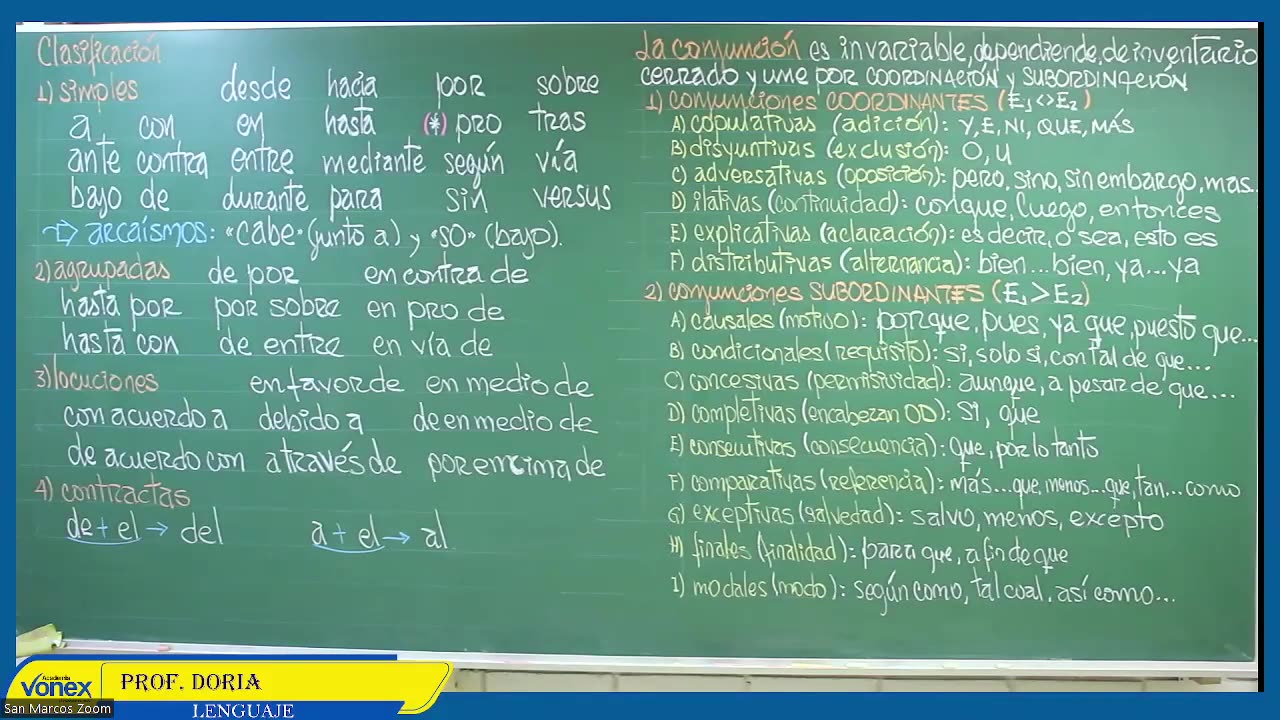 Clasificación
1) simples desde hacia por sobre
a con en hasta (*) pro tras
ante contra entre mediante según vía
bajo de durante para sin versus
arcaísmos: "cabe" (junto a) y "so" (bajo).
2) agrupadas de por en contra de
hasta por por sobre en pro de
hasta con de entre en vía de
3) locuciones en favor de en medio de
con acuerdo a debido a de en medio de
de acuerdo con a través de por encima de
4) contractas
de + el → del a + el → al
La conjunción es invariable, dependiende, de inventario
cerrado y une por COORDINACIÓN y SUBORDINACIÓN
1) conjunciones COORDINANTES (E1<>E2)
A) copulativas (adición): Y, E, NI, QUE, MÁS
B) disyuntivas (exclusión): O, U
C) adversativas (oposición): pero, sino, sin embargo, mas...
D) ilativas (continuidad): conque, luego, entonces
E) explicativas (aclaración): es decir, o sea, esto es
F) distributivas (alternancia): bien...bien, ya...ya
2) conjunciones SUBORDINANTES (E1>E2)
A) causales (motivo): porque, pues, ya que, puesto que...
B) condicionales (requisito): si, solo si, con tal de que...
C) concesivas (permisividad): aunque, a pesar de que...
D) completivas (encabezan OD): si, que
E) consecutivas (consecuencia): que, por lo tanto
F) comparativas (referencia): más...que, menos...que, tan...como
G) exceptivas (salvedad): salvo, menos, excepto
H) finales (finalidad): para que, a fin de que
I) modales (modo): según como, tal cual, así como...
Academia
vonex
PROF. DORIA
LENGUAJE
San Marcos Zoom